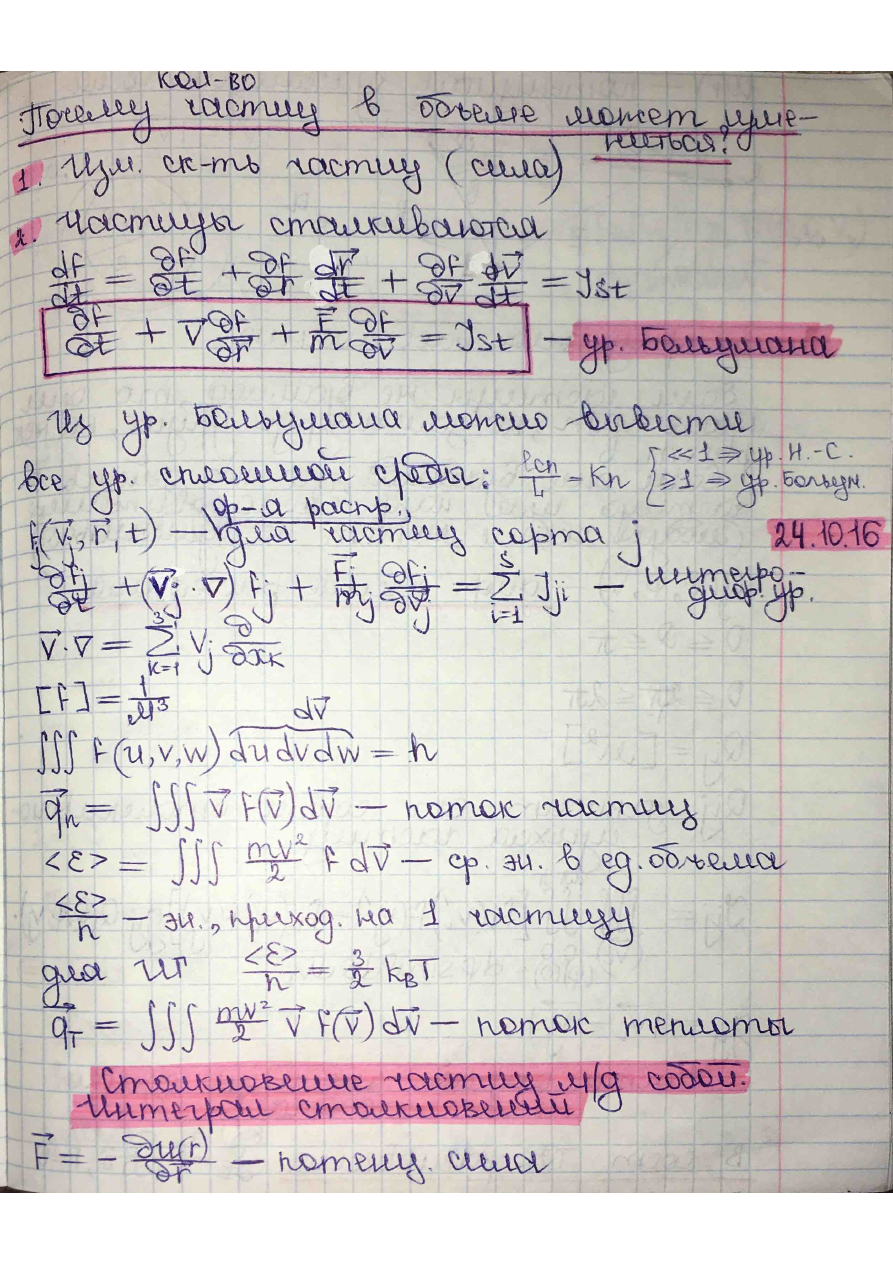 кол-во
Почему частиц в объеме может уме-
ниться?
1. Изм. ск-ть частиц (сила)
2. Частицы сталкиваются
df/dt = ∂f/∂t + ∂f/∂r⃗ dr⃗/dt + ∂f/∂v⃗ dv⃗/dt = Jst
∂f/∂t + v⃗ ∂f/∂r⃗ + F⃗/m ∂f/∂v⃗ = Jst — ур. Больцмана
Из ур. Больцмана можно вывести
все ур. сплошной среды: lсп/L = Kn { ≪1 ⇒ ур. Н.-С.
≥1 ⇒ ур. Больцм.
ф-я распр.,
fj(v⃗j, r⃗, t) — для частиц сорта j 24.10.16
∂fj/∂t + (v⃗j · ∇) fj + F⃗j/mj ∂fj/∂v⃗j = ∑_{i=1}^{s} Jji — интегро-
диф. ур.
v⃗·∇ = ∑_{k=1}^{3} Vj ∂/∂xk
[f] = 1/м³
∭ f(u,v,w) du dv dw = n
dv⃗
q⃗n = ∭ v⃗ f(v⃗) dv⃗ — поток частиц
<ε> = ∭ mv²/2 f dv⃗ — ср. эн. в ед. объема
<ε>/n — эн., приход. на 1 частицу
для ИГ <ε>/n = 3/2 kвT
q⃗т = ∭ mv²/2 v⃗ f(v⃗) dv⃗ — поток теплоты
Столкновение частиц м/д собой.
Интеграл столкновений
F⃗ = - ∂u(r)/∂r⃗ — потенц. сила